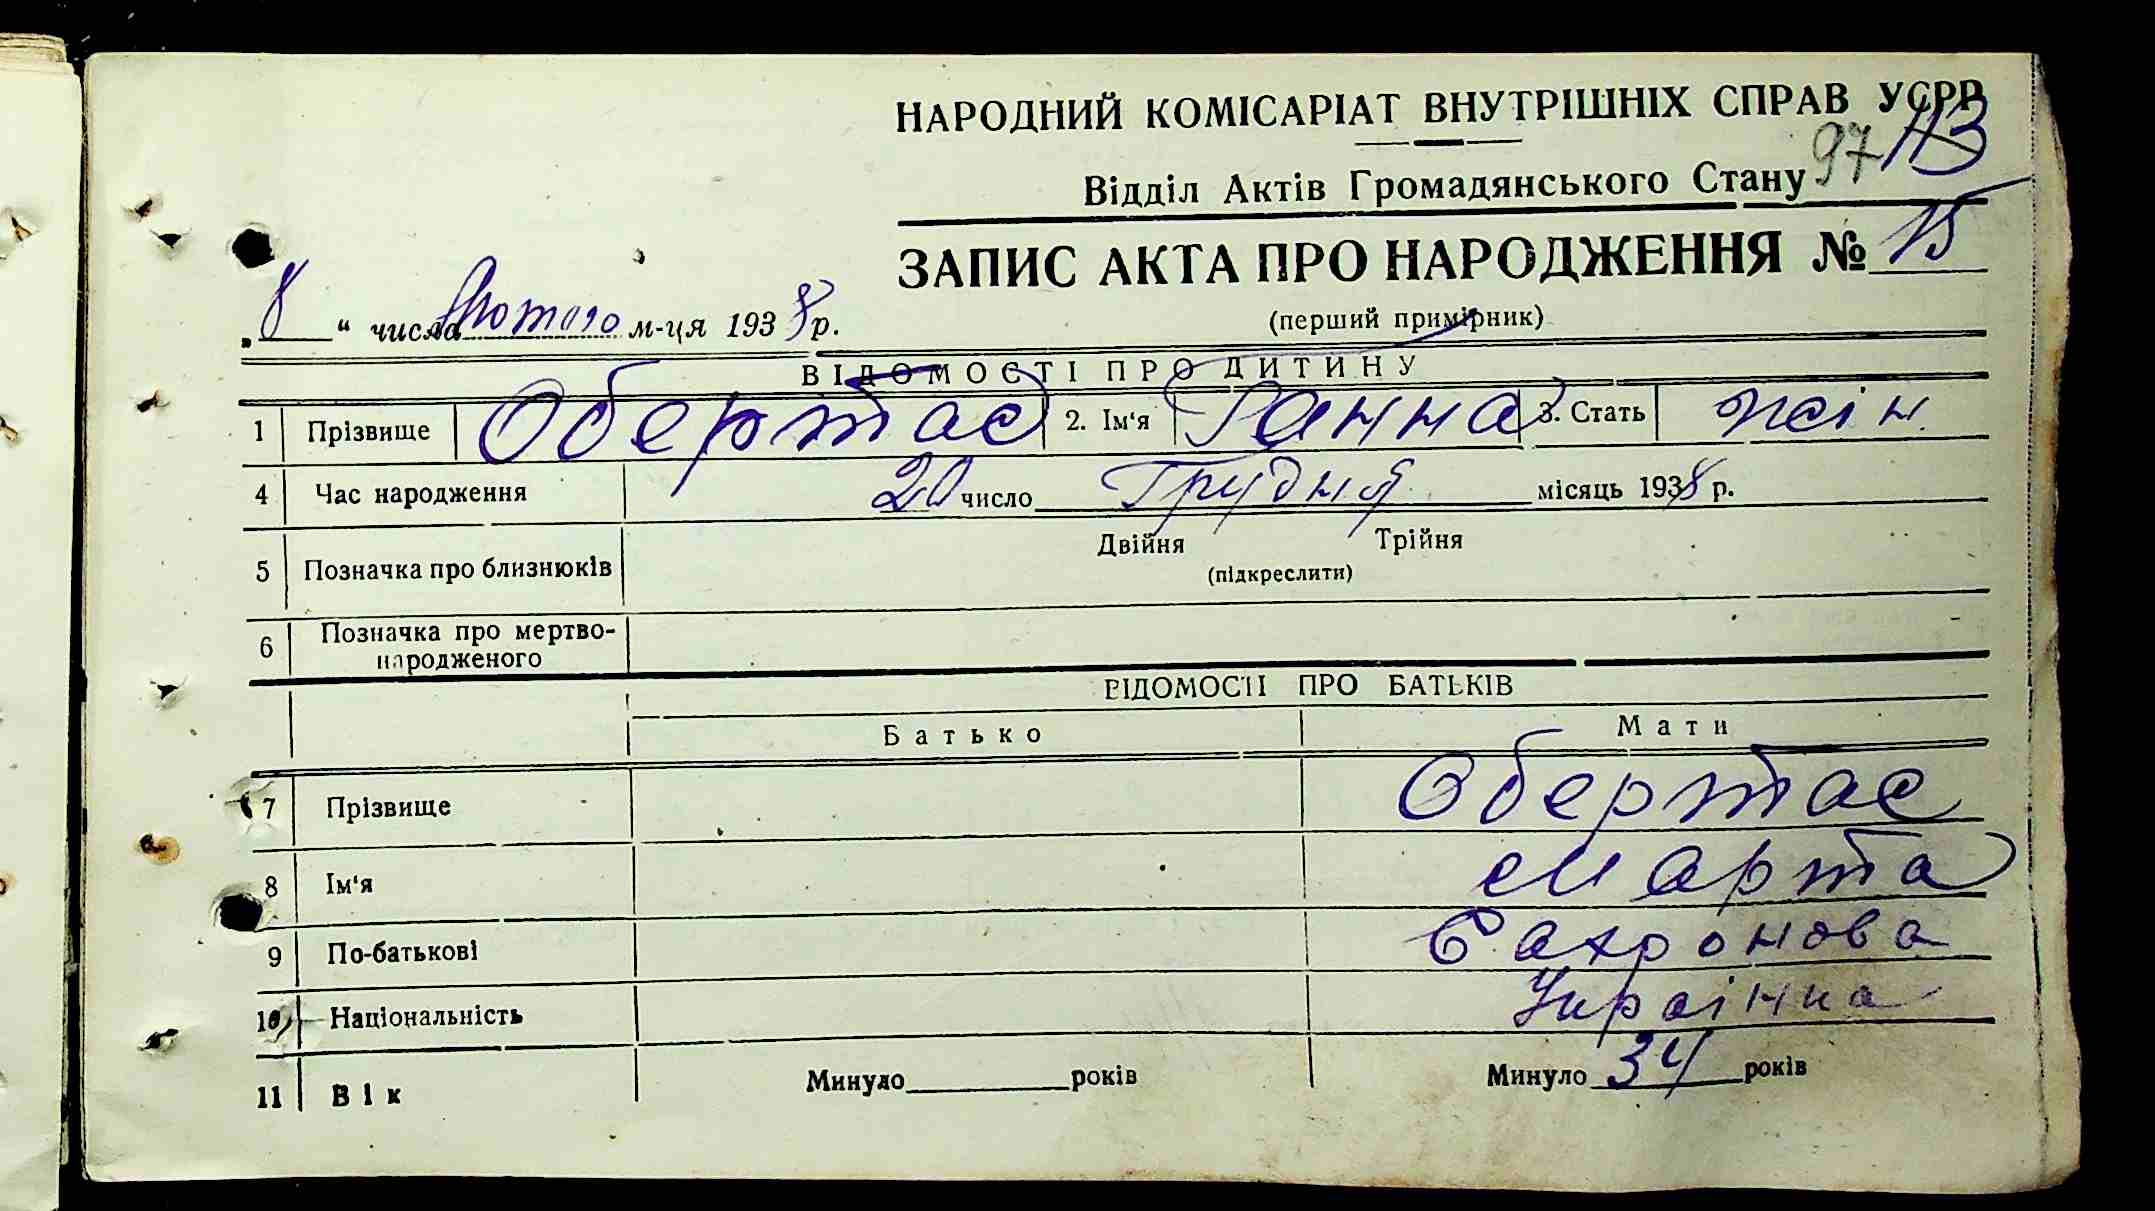 НАРОДНИЙ КОМІСАРІАТ ВНУТРІШНІХ СПРАВ УСРР
97 113
Відділ Актів Громадянського Стану
ЗАПИС АКТА ПРО НАРОДЖЕННЯ № 15
„8“ числа Лютого м-ця 1938 р.
(перший примірник)
ВІДОМОСТІ ПРО ДИТИНУ
1 Прізвище Обертас 2. Ім'я Ганна 3. Стать жін.
4 Час народження 20 число Грудня місяць 1938 р.
5 Позначка про близнюків Двійня Трійня
(підкреслити)
6 Позначка про мертво-
народженого
ВІДОМОСТІ ПРО БАТЬКІВ
Батько Мати
7 Прізвище Обертас
8 Ім'я Марта
9 По-батькові Сахронова
10 Національність Українка
11 Вік Минуло ______ років Минуло 34 років